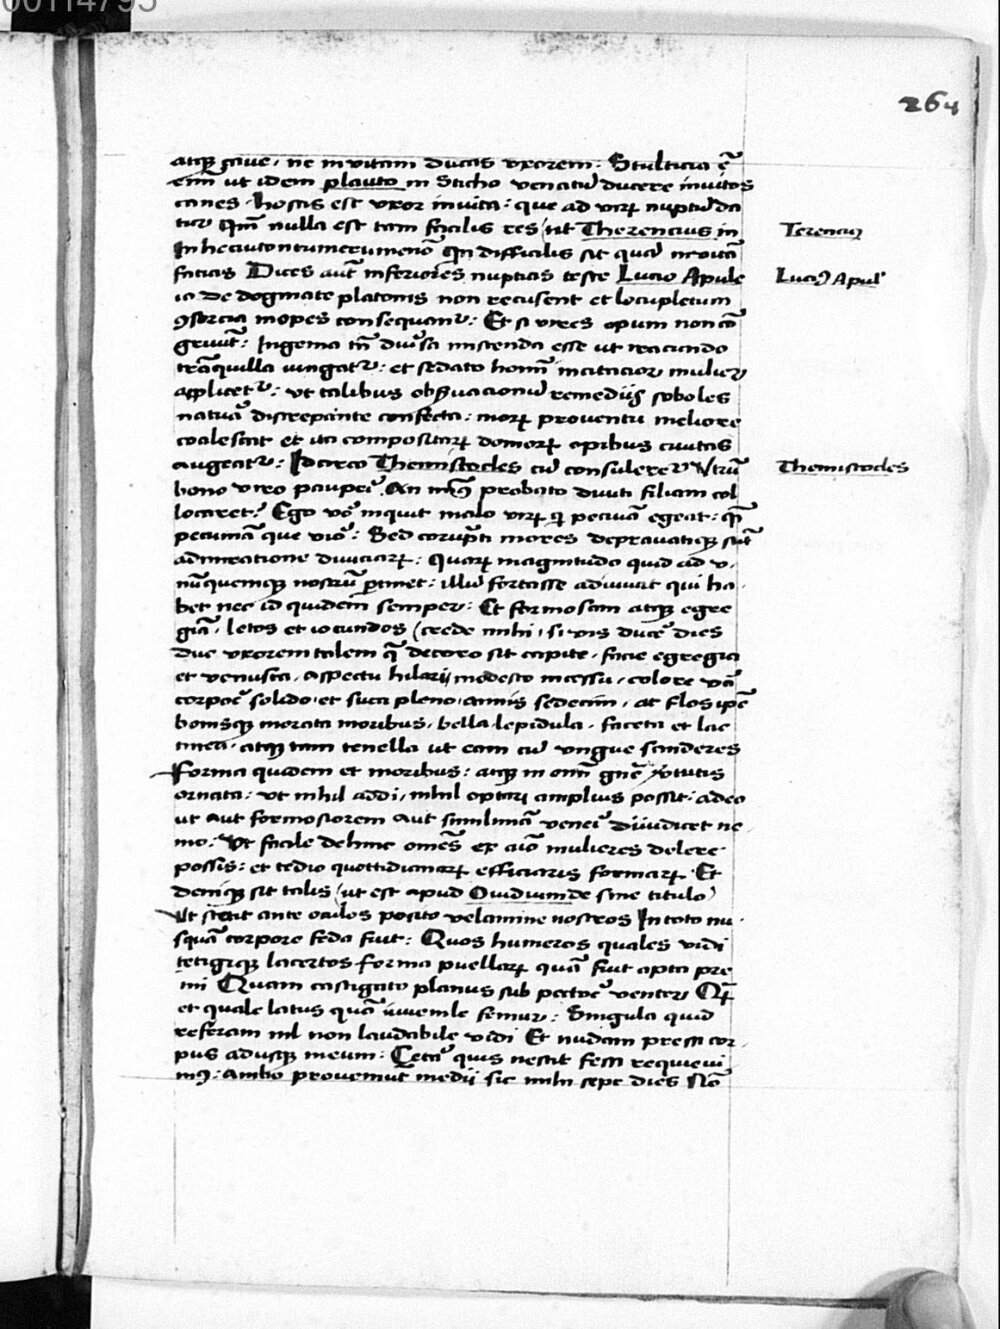 00114795
264
atqꝫ cave, ne invitam ducas uxorem. Stulticia ē
eni᷒ ut idem plauto in Sticho venatū ducere invitos
canes. hostis est uxor invita: que ad virꝝ nuptū da
tur qm̄ nulla est tam facilis res (ut Therencius in
In heautontumerumenō qn̄ difficilis sit quā invitā
facias Dices aut̄ inferiores nuptias teste Lucio Apule
io de dogmate platonis non recusent et locupletum
ꝯsorcia inopes consequant᷑: Et si vires opum non cō
gruūt: Ingenia tn̄ diu᷒sa miscenda esse ut iracundo
trāquilla iungat᷑: et sedato homī incitacior mulier
applicet᷑: ut talibus obs᷒uacionū remediis soboles
natura discrepante confecta: morꝝ proventu meliore
coalescat et ita compositarꝝ domorꝝ opibus civitas
augeat᷑: Idcirco Themistocles cū consuleret᷑ Utrū
bono viro paup᷒i An min᷒ probato diviti filiam col
locaret? Ego v᷒o inquit malo virꝝ qi pecuniā egeat: qm̄
pecuniā que viro: Sed corrupti mores depravatiqꝫ sūt
admiratione diviciarꝝ: Quarꝝ magnitudo quid ad v.
nūquemqꝫ nostrū ꝑtinet: illū fortasse adiuvat qui ha.
bet nec id quidem semper: Et formosam atqꝫ egre
giā, letos et iocundos (crede mihi, si vis duce᷒ dies
Duc uxorem talem q̄ decoro sit capite, facie egregia
et venusta, aspectu hilari modesto incessu, colore v᷒o
corpore solido et suci pleno, annis sedecim, at flos ipe᷒
bonisqꝫ morata moribus, bella lepidula, faceta et lac
tinea, atqꝫ tam tenella ut eam cū ungue scinderes
forma quidem et moribus: atqꝫ in omī gn̄e v᷒tutis
ornata: ut nihil addi, nihil optari amplius possit: adeo
ut aut formosiorem aut simillimā vene᷒i diiudicet ne
mo: Ut facile dehinc omēs ex aīo mulieres delere
possis: et tedio quottidianarꝝ efficiaris formarꝝ Et
deniqꝫ sit talis (ut est apud Ouidium de sine titulo)
Ut stetit ante oculos posito velamine nostros In toto nu.
squā corpore feda fuit: Quos humeros quales vidi
tetigiqꝫ lacertos forma puellarꝝ quā fuit apta pre
mi Quam castigato planus sub pectore venter Qm̄
et quale latus quā iuvenile femur: Singula quid
referam nil non laudabile vidi Et nudam pressi cor.
pus adusqꝫ meum: Cet᷒a quis nescit fessi requievi
mꝰ: ambo provemiūt medii sic mihi sepe dies Nō
Terenciꝰ
Luciꝰ Apul᷒
Themistocles